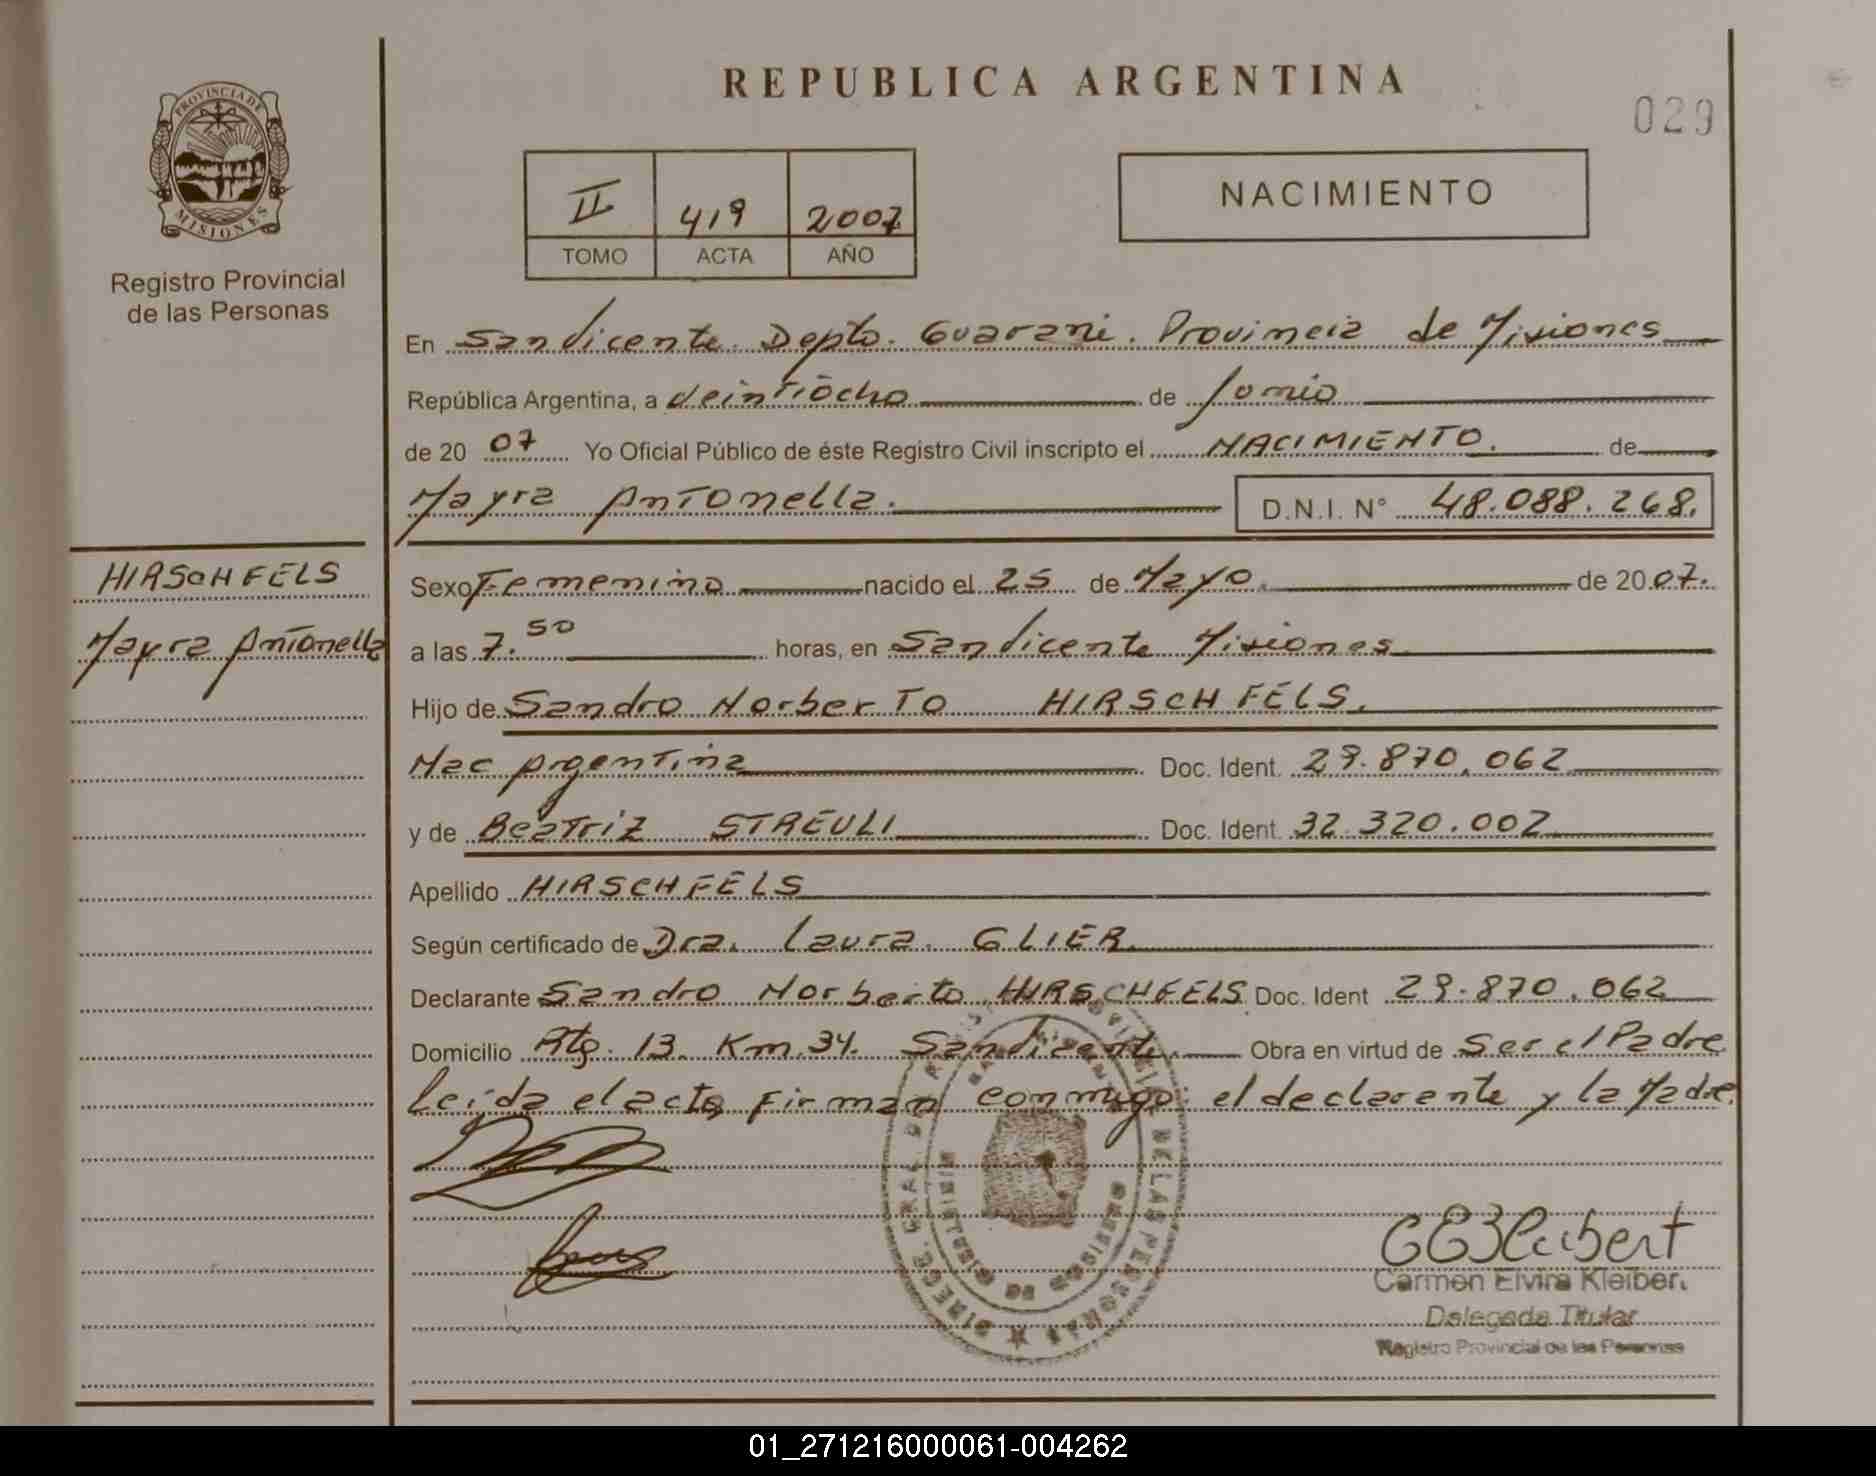 REPUBLICA ARGENTINA
029
PROVINCIA DE MISIONES
Registro Provincial
de las Personas
II 419 2007
TOMO ACTA AÑO
NACIMIENTO
En San Vicente. Depto. Guarani. Provincia de Misiones
República Argentina, a Veintiocho de Junio
de 20 07 Yo Oficial Público de éste Registro Civil inscripto el NACIMIENTO. de
Mayra Antonella. D.N.I. N° 48.088.268.
HIRSCHFELS
Mayra Antonella
Sexo Femenino nacido el 25 de Mayo. de 20 07.
a las 7.50 horas, en San Vicente Misiones
Hijo de Sandro Norberto HIRSCHFELS.
Nac Argentina Doc. Ident. 29.870.062
y de Beatriz STREULI Doc. Ident. 32.320.002
Apellido HIRSCHFELS
Según certificado de Dra. Laura. GLIER.
Declarante Sandro Norberto HIRSCHFELS Doc. Ident 29.870.062
Domicilio Rta. 13. Km. 34. San Vicente. Obra en virtud de Ser el Padre
Leída el acta, Firman conmigo: el declarante y la Madre.
CEKleibert
Carmen Elvira Kleibert
Delegada Titular
Registro Provincial de las Personas
01_271216000061-004262